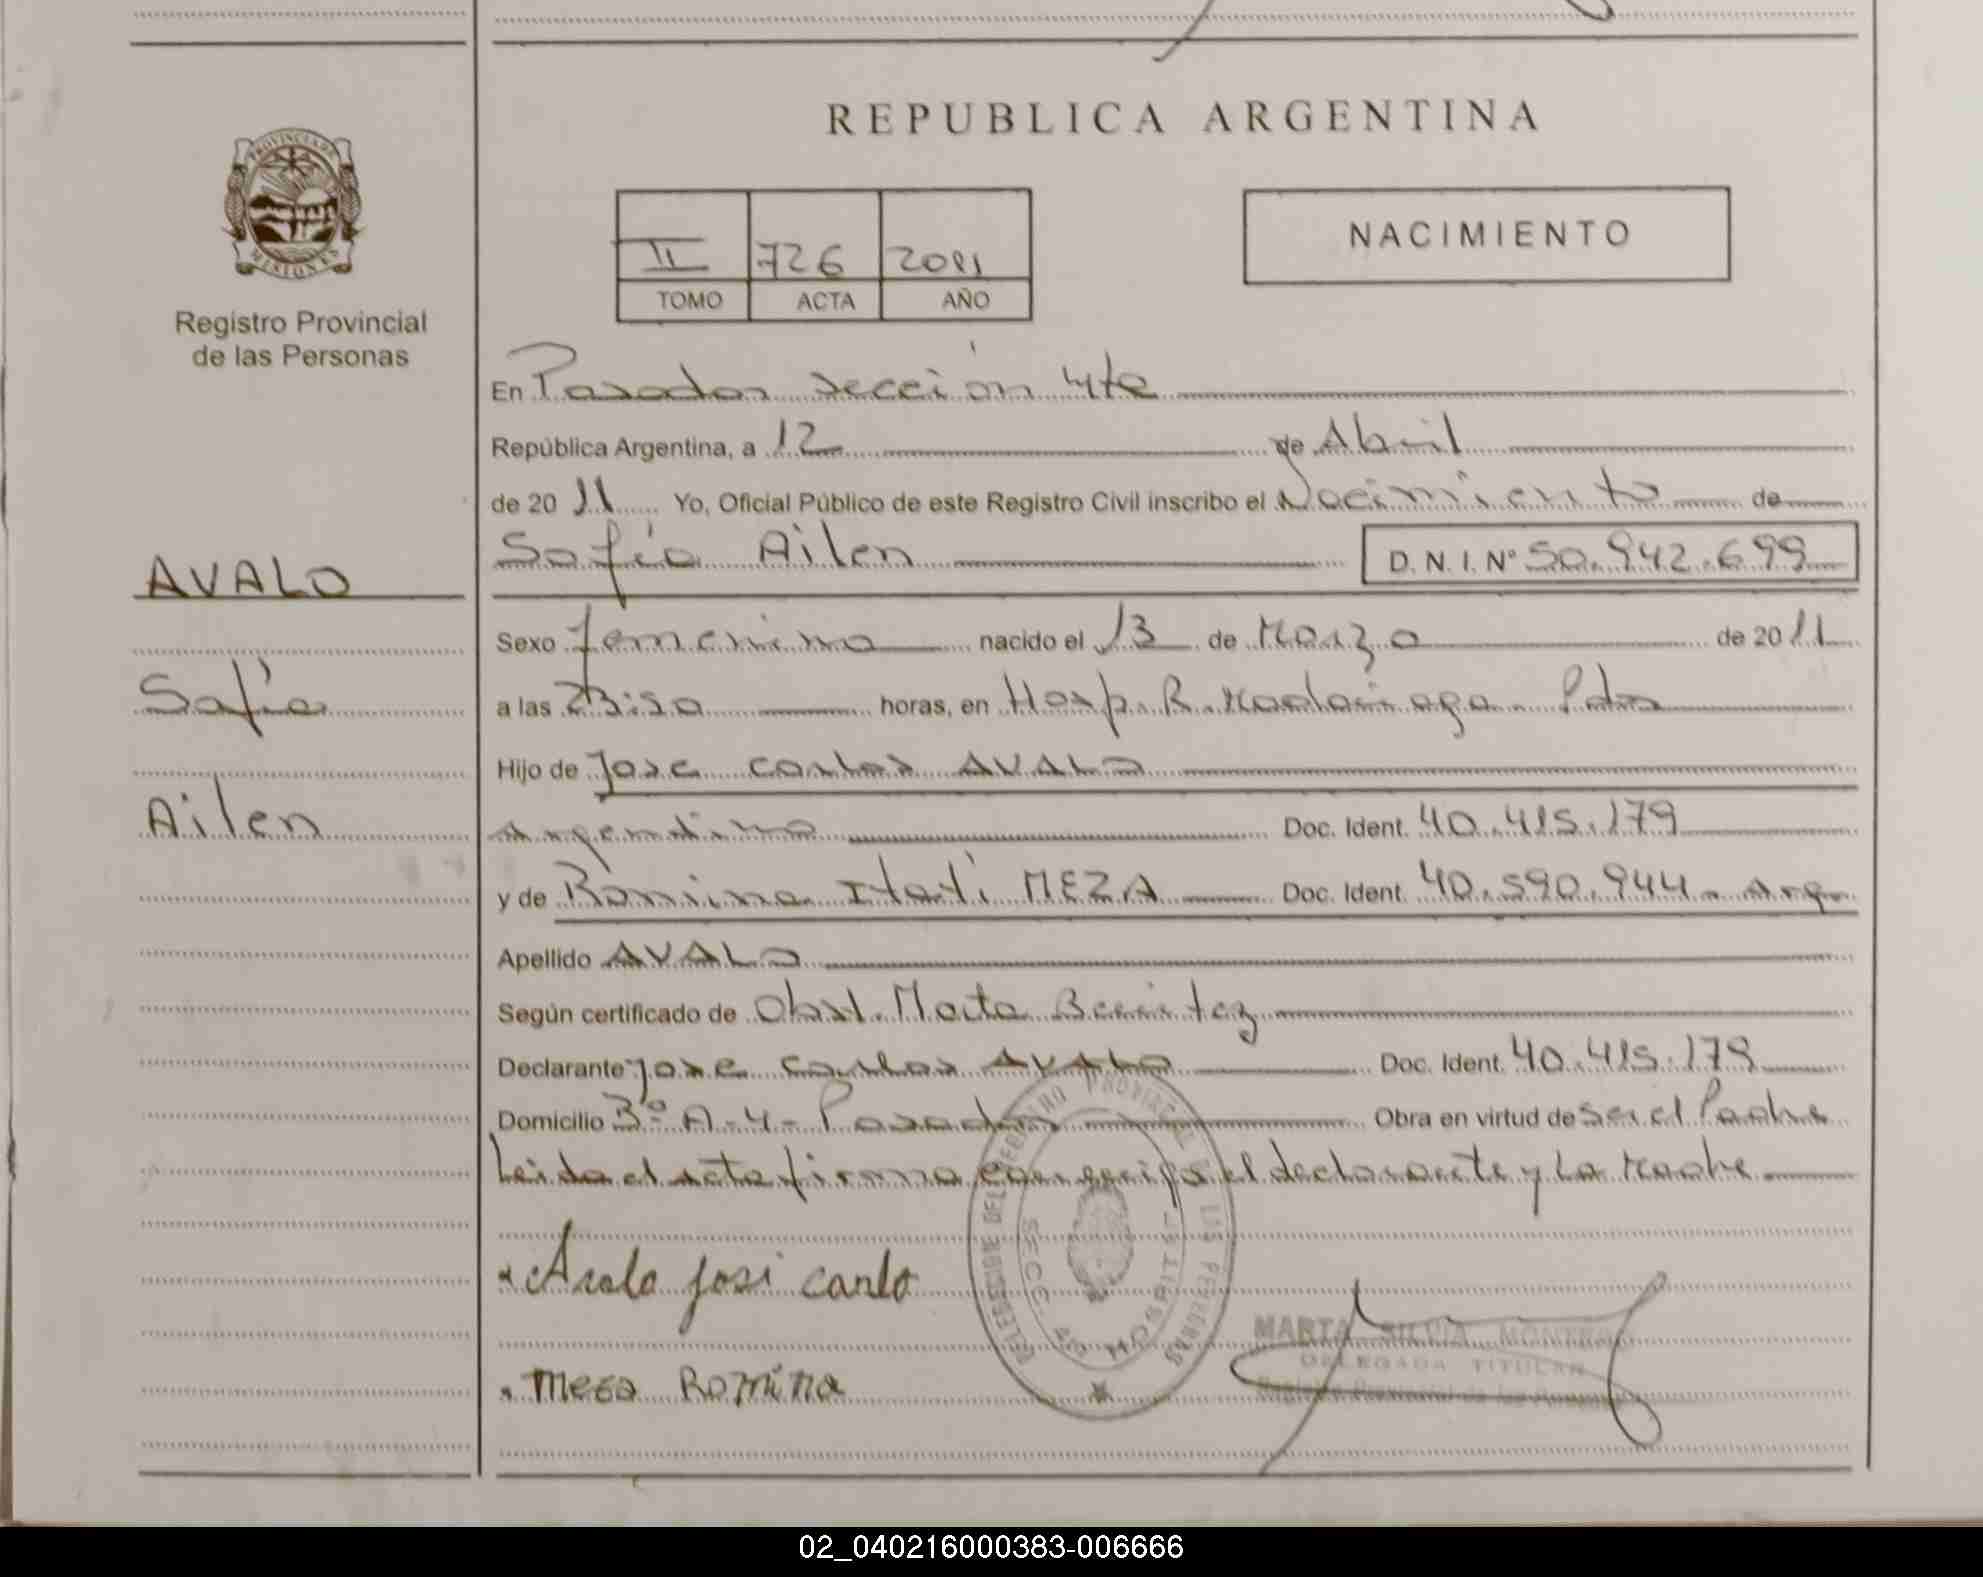 REPUBLICA ARGENTINA
PROVINCIA DE MISIONES
Registro Provincial
de las Personas
NACIMIENTO
II 726 2011
TOMO ACTA AÑO
En Posadas sección 4te
República Argentina, a 12 de Abril
de 20 11 Yo, Oficial Público de este Registro Civil inscribo el Nacimiento de
Sofía Ailen D. N. I. Nº 50.942.699
AVALO
Sofía
Ailen
Sexo femenino nacido el 13 de Marzo de 20 11
a las 23:50 horas, en Hosp. R. Madariaga. Pdas
Hijo de Jose Carlos AVALO
Argentino Doc. Ident. 40.415.179
y de Romina Itatí MEZA Doc. Ident. 40.590.944 - Arg
Apellido AVALO
Según certificado de Obst. Marta Benitez
Declarante Jose Carlos AVALO Doc. Ident. 40.415.179
Domicilio 3º A-4- Posadas Obra en virtud de Ser el Padre
Leida el acta firma conmigo el declarante y La Madre
Avalo José Carlo
Meza Romina
DELEGACION DEL REGISTRO PROVINCIAL DE LAS PERSONAS
SECC. HOSPITAL
MARTA SILVIA
DELEGADA TITULAR
Registro Provincial de las Personas
02_040216000383-006666